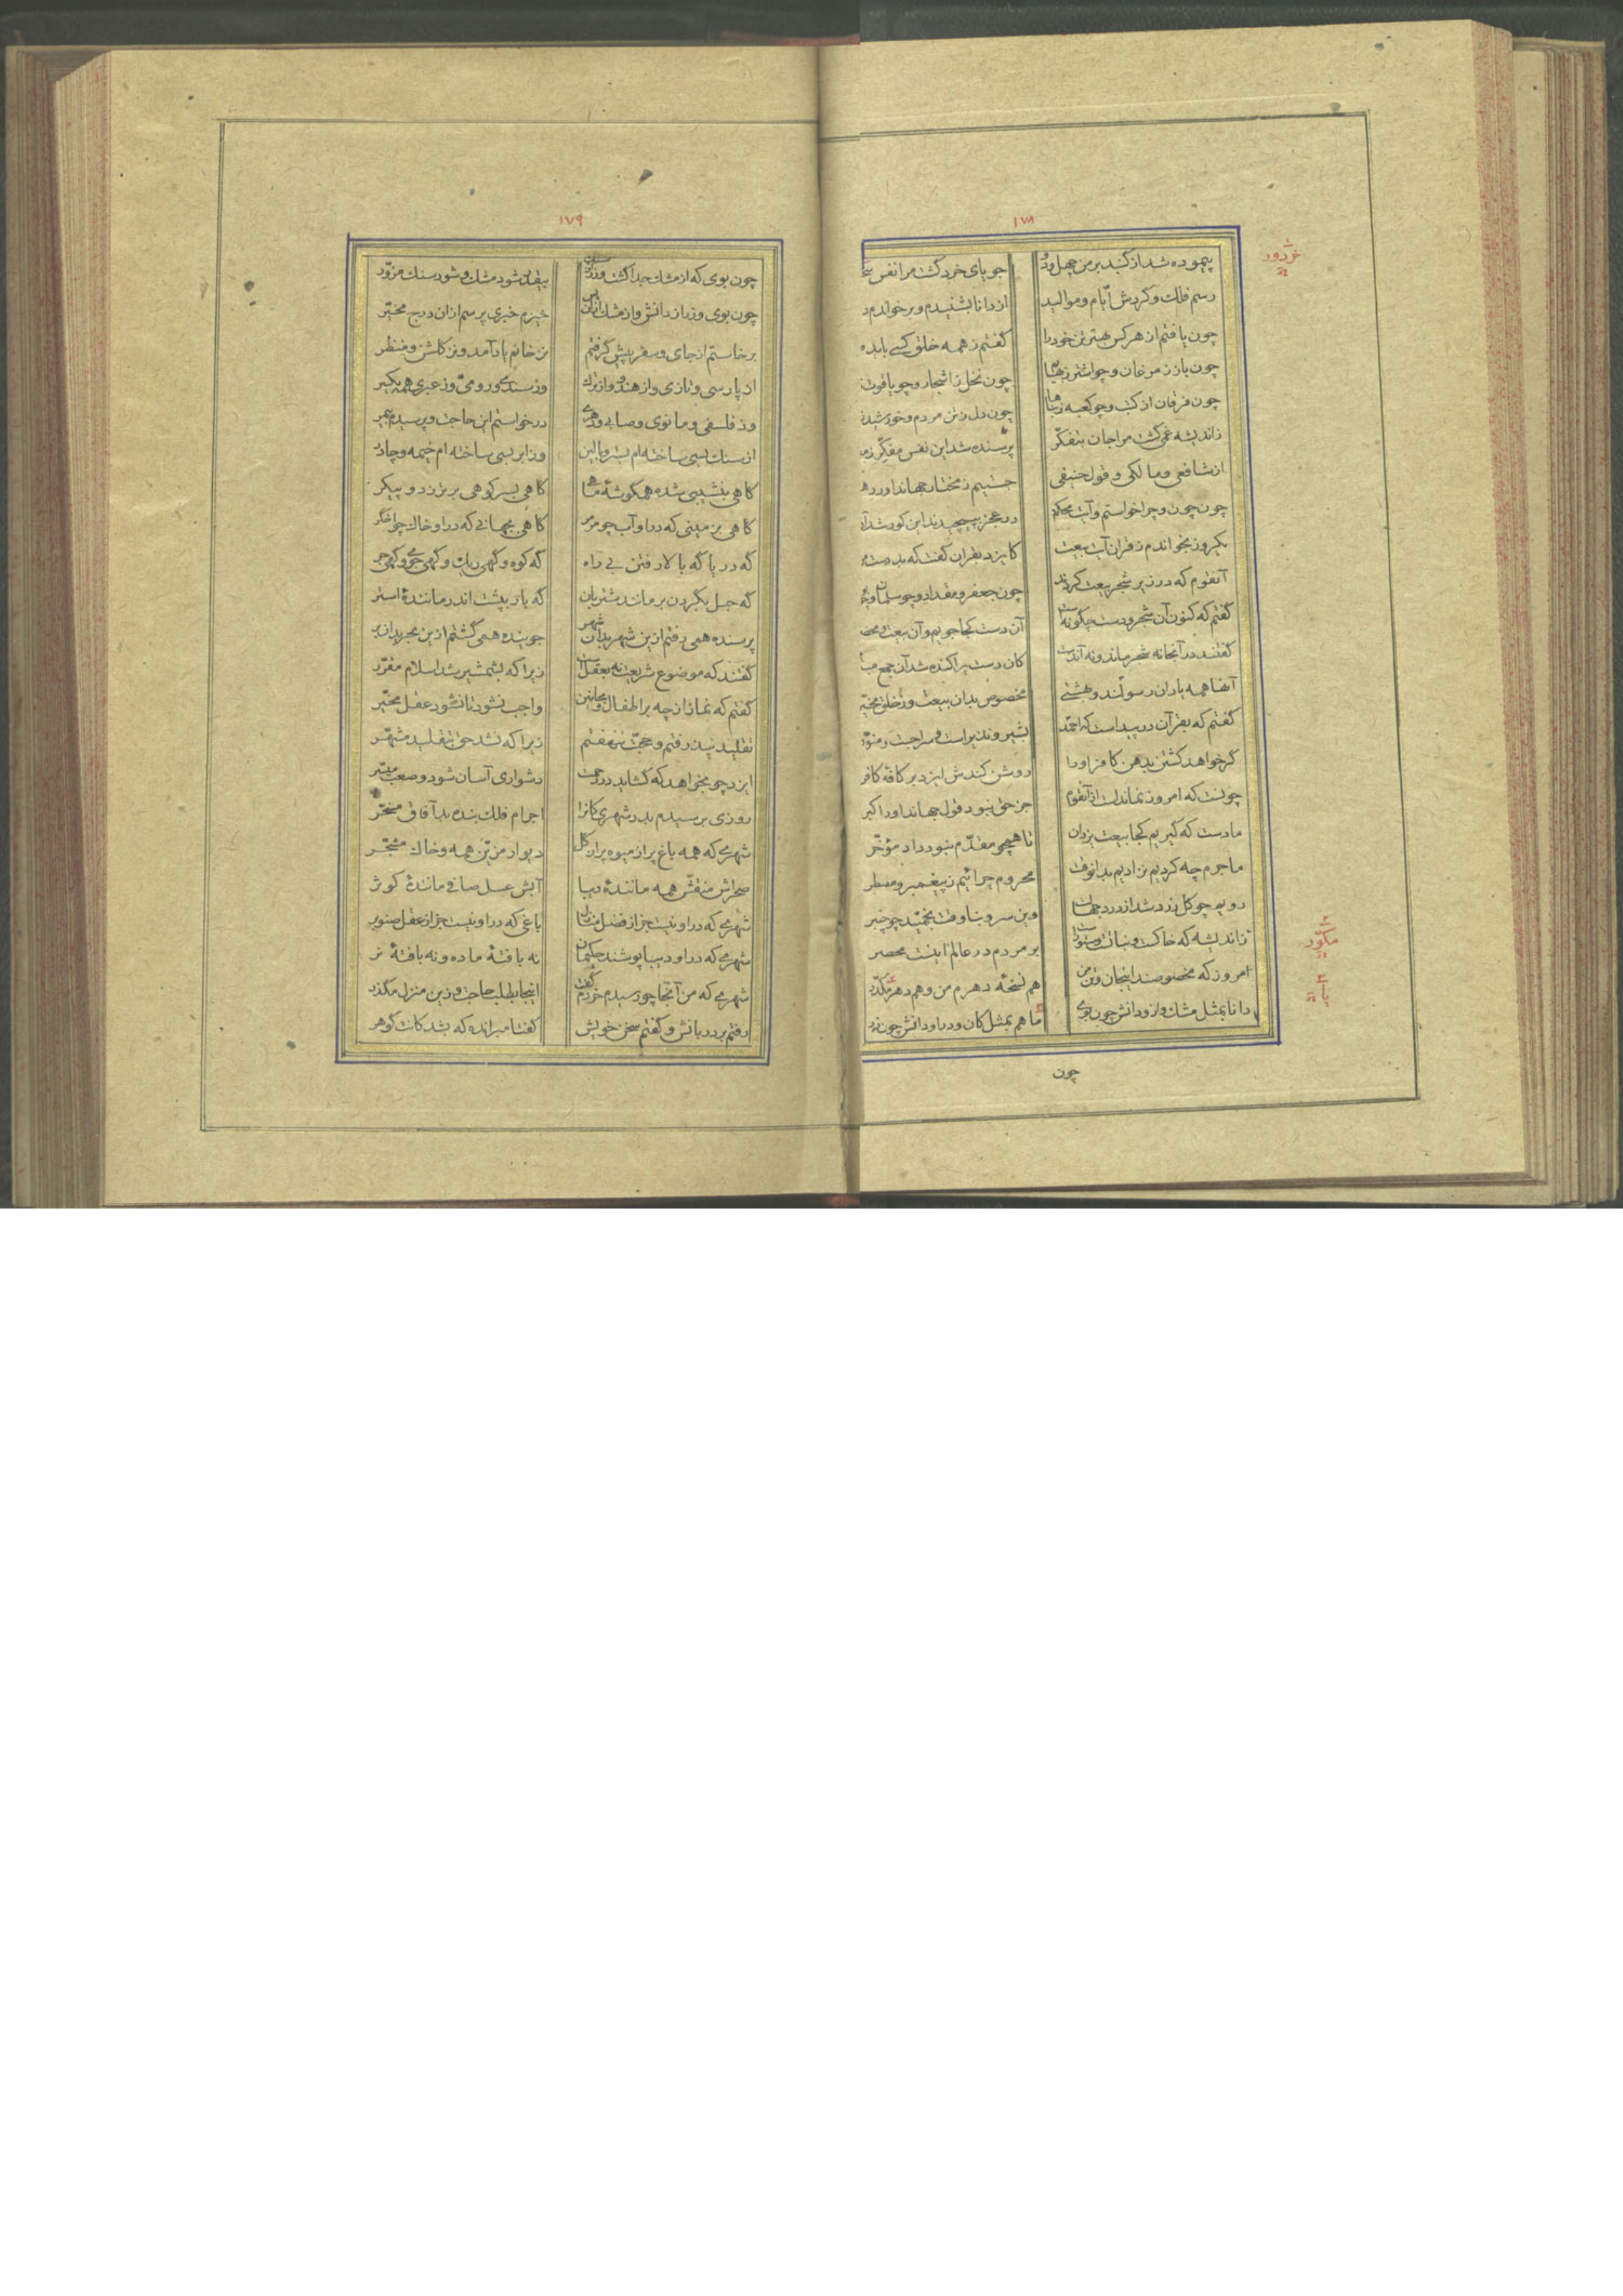 ١٧٨
پیموده شد از گنبد بر من چهل و دو جویای خرد گشت مرا نفس
خردور
رسم فلك و گردش ایّام و موالید از دانا بشنیدم و برخواندم
چون یافتم از هر کس بهترین خود را گفتم ز همه خلق کسی باید
چون باز ز مرغان و چو اشتر ز بهایم چون نخل ز اشجار و چو یاقوت
چون فرقان از کتب و چو کعبه ز بناها چون دل ز تن مردم و خورشید
ز اندیشه غمی گشت مرا جان بتفکّر پرسنده شد این نفس مفکّر
از شافعی و مالکی و قول حنیفی جستیم ز مختار جهانداور
چون چون و چرا خواستم و آیت محکم در عجز بپیچیدند این کور شد آن
یکروز بخواندم ز قران آیت بیعت کایزد بقران گفت که بد دست
آنقوم که در زیر شجر بیعت کردند چون جعفر و مقداد و چو سلمان و
گفتم که کنون آن شجر و دست چگونه است آن دست کجا جویم و آن بیعت و
گفتند در آنجا نه شجر ماند و نه آندست کان دست پراکنده شد آن جمع
آنها همه یاران رسولند و بهشتی مخصوص بدان بیعت و ز خلق
گفتم که بقرآن در پیداست که احمد بشیر و نذیر است و سراجست و منوّر
گر خواهد کشتن بدهن کافر او را روشن کندش ایزد بر کافهٔ کافر
چونست که امروز نماندست از آنقوم جز حق نبود قول جهانداور اکبر
ما دست که گیریم کجا بیعت یزدان تا همچو مقدّم نبود داد مؤخّر
ما جرم چه کردیم نزادیم بدانوقت محروم چرائیم ز پیغمبر و مضطر
رویم چو گل زرد شد از درد جهالت وین سرو بناوقت بخمید چو چنبر
ز اندیشه که خاکست و نباتست و ستورست بر مردم در عالم اینست محصر
مکوّر
امروز که مخصوصند اینجان و تن من هم نسخهٔ دهرم من و هم دهر مکدّر
دانا بمثل مشك و از و دانش چون بوی ما هم بمثل کان و در او دانش چون زر
یا
چون
١٧٩
چون بوی که از مشك جدا گشت و زر از سنگ بیقدر شود مشك و شود سنك مزوّر
چون بوی و زر از دانش و از مشك ازین پس خیزم خبری پرسم از آن درج مخبّر
برخاستم از جای و سفر پیش گرفتم نز خانم یاد آمد و نز گلشن و منظر
از پارسی و تازی و از هندو و از ترك وز سندی و رومیّ و ز عبری همه یکسر
وز فلسفی و مانوی و صابی و دهری درخواستم این حاجت و پرسیدم بیمر
از سنك بسی ساخته ام بستر و بالین وز ابر بسی ساخته ام خیمه و چادر
گاهی بنشیبی شده همگوشهٔ ماهی گاهی بسر کوهی برتر ز دو پیکر
گاهی بزمینی که در او آب چو مرمر گاهی بجهانی که در او خاك چو اخگر
گه دریا گه بالا رفتن بی راه گه کوه و گهی ریك و گهی جوی و گهی جر
گه حبل بگردن بر مانند شتربان گه بار بپشت اندر مانندهٔ استر
پرسنده همی رفتم ازین شهر بدان شهر جوینده همی گشتم ازین بحر بدان بر
گفتند که موضوع شریعت نه بعقل است زیرا که بشمشیر شد اسلام مقرّر
گفتم که نماز از چه بر اطفال و مجانین واجب نشود تا نشود عقل مخیّر
تقلید نپذرفتم و حجّت ننهفتم زیرا که نشد حق بتقلید مشهّر
ایزد چو بخواهد که گشاید در رحمت دشواری آسان شود و صعب میسّر
روزی برسیدم بدر شهری کانرا اجرام فلك بنده بد آفاق مسخّر
شهری که همه باغ پر از میوه پر از گل دیوار مزیّن همه و خاك مشجّر
صحراش منقّش همه مانندهٔ دیبا آبش عسل صافی مانندهٔ کوثر
شهری که در او نیست جز از فضل منازل باغی که در او نیست جز از عقل صنوبر
شهری که در او دیبا پوشند حکیمان نه بافتهٔ ماده و نه بافتهٔ نر
شهری که من آنجا چو رسیدم خردم گفت اینجا بطلب حاجت و زین منزل مگذر
رفتم بر دربانش و گفتم سخن خویش گفتا مبر انده که بشد کانت گوهر